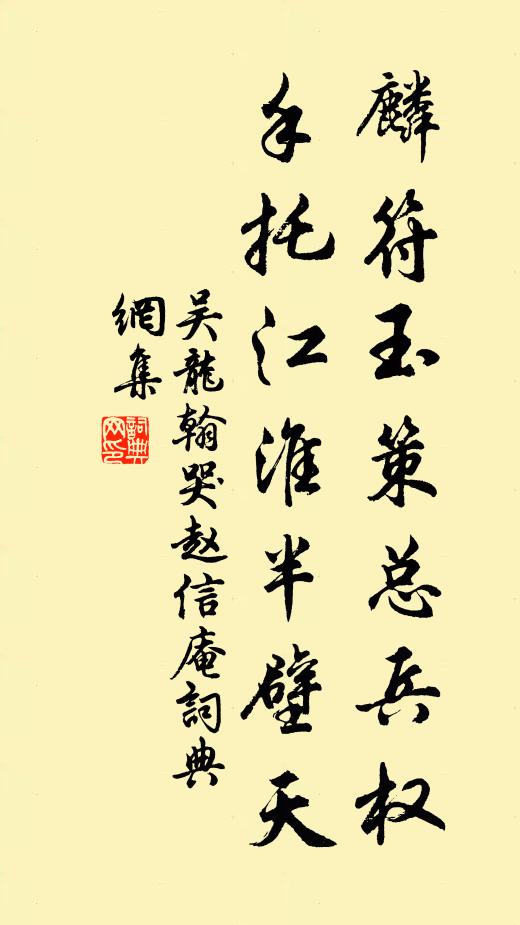 麟符玉策总兵权
手托江淮半壁天
吴龍翰哭赵信庵詞典
網集
詞典
网印